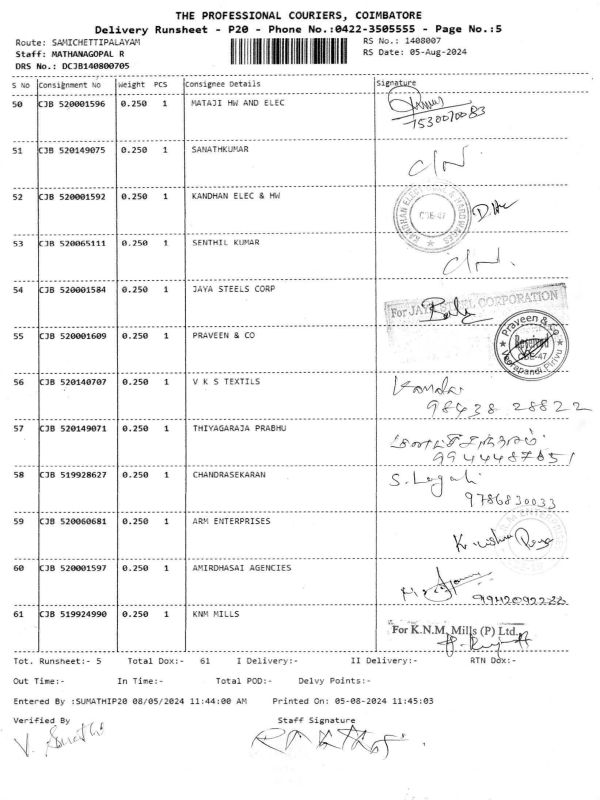 THE PROFESSIONAL COURIERS, COIMBATORE
Delivery Runsheet - P20 - Phone No.:0422-3505555 - Page No.:5
Route: SAMICHETTIPALAYAM
RS No.: 1408007
Staff: MATHANAGOPAL R
RS Date: 05-Aug-2024
DRS No.: DCJB140800705
S No Consignment No Weight PCS Consignee Details Signature
50 CJB 520001596 0.250 1 MATAJI HW AND ELEC
7530070083
51 CJB 520149075 0.250 1 SANATHKUMAR
C/N.
52 CJB 520001592 0.250 1 KANDHAN ELEC & HW
KANDHAN ELECTRICAL & HARDWARES
CBE-47
53 CJB 520065111 0.250 1 SENTHIL KUMAR
C/N.
54 CJB 520001584 0.250 1 JAYA STEELS CORP
For JAYA STEEL CORPORATION
55 CJB 520001609 0.250 1 PRAVEEN & CO
Praveen & Co
Received
CBE-47
Veerapandi Pirivu
56 CJB 520140707 0.250 1 V K S TEXTILS
98438 28822
57 CJB 520149071 0.250 1 THIYAGARAJA PRABHU
9944487651
58 CJB 519928627 0.250 1 CHANDRASEKARAN
9786830033
59 CJB 520060681 0.250 1 ARM ENTERPRISES
60 CJB 520001597 0.250 1 AMIRDHASAI AGENCIES
61 CJB 519924990 0.250 1 KNM MILLS
For K.N.M. Mills (P) Ltd.
Tot. Runsheet:- 5 Total Dox:- 61 I Delivery:- II Delivery:- RTN Dox:-
Out Time:- In Time:- Total POD:- Delvy Points:-
Entered By :SUMATHIP20 08/05/2024 11:44:00 AM Printed On: 05-08-2024 11:45:03
Verified By Staff Signature